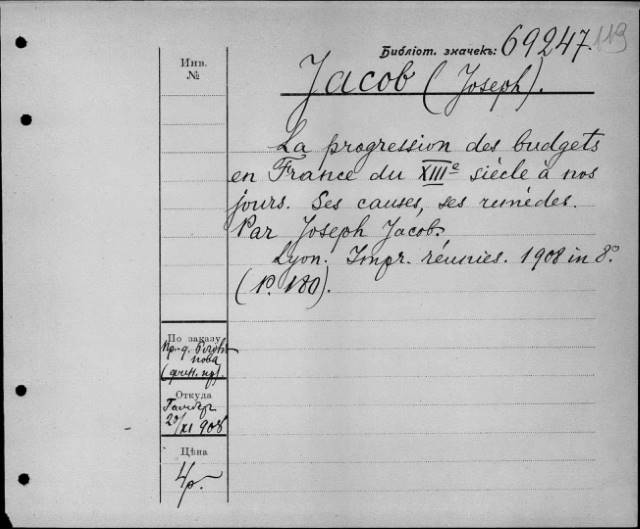 Библіот. значекъ: 69247. 113
Инв.
№
Jacob (Joseph).
La progression des budgets
en France du XIIIe siècle à nos
jours. Ses causes, ses remèdes.
Par Joseph Jacob.
Lyon. Impr. réunies. 1908 in 8º
(P. 180).
По заказу
Откуда
20/XI 908
Цѣна
4р.